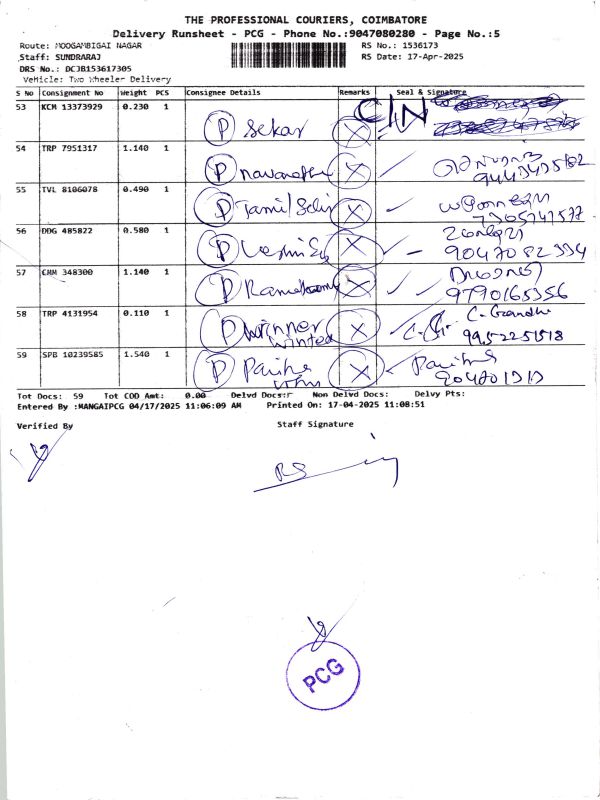 THE PROFESSIONAL COURIERS, COIMBATORE
Delivery Runsheet - PCG - Phone No.:9047080280 - Page No.:5
Route: MOOGAMBIGAI NAGAR RS No.: 1536173
Staff: SUNDRARAJ RS Date: 17-Apr-2025
DRS No.: DCJB153617305
Vehicle: Two Wheeler Delivery
S No Consignment No Weight PCS Consignee Details Remarks Seal & Signature
53 KCM 13373929 0.230 1 P Sekar X C/N
54 TRP 7951317 1.140 1 P X
55 TVL 8106078 0.490 1 P Tamil Selvi X
56 DDG 485822 0.580 1 P X 9047082334
57 CHM 348300 1.140 1 P X 9790165356
58 TRP 4131954 0.110 1 P winner X C. Gandhi
winted 9952251518
59 SPB 10239585 1.540 1 P X
Tot Docs: 59 Tot COD Amt: 0.00 Delvd Docs: Non Delvd Docs: Delvy Pts:
Entered By :MANGAIPCG 04/17/2025 11:06:09 AM Printed On: 17-04-2025 11:08:51
Verified By Staff Signature
RS
PCG